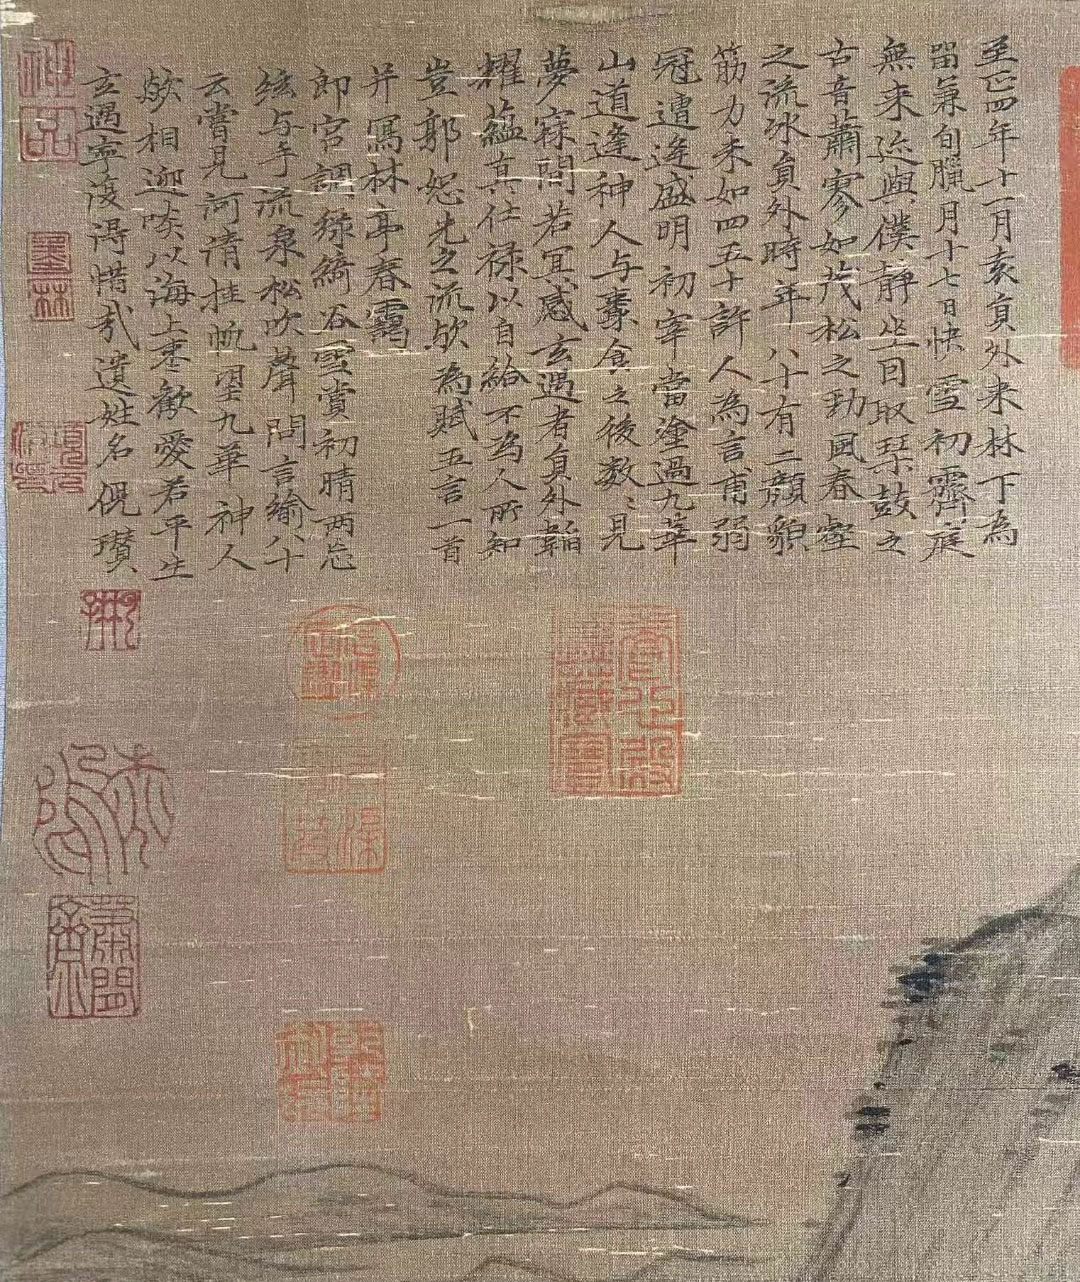 至正四年十一月袁員外来林下為
留兼旬臘月十七日快雪初霽庭
無来迹與僕静坐因取琴鼓之
古音蕭寥如茂松之勁風春壑
之流冰員外時年八十有二顔貌
筋力未如四五十許人為言甫弱
冠遭逢盛明初宰當塗過九華
山道逢神人与棗食之後数〻見
夢寐間若冥感玄遇者員外韜
耀藴真仕禄以自給不為人所知
豈郭恕先之流歟為賦五言一首
并寫林亭春靄
郎官調緑綺谷雪賞初晴两忘
絃与手流泉松吹聲問言踰八十
云嘗見河清挂帆望九華神人
歘相迎啖以海上棗歡愛若平生
玄遇寧復得惜哉遺姓名倪瓚
神品
墨林
養心殿鑑藏寶